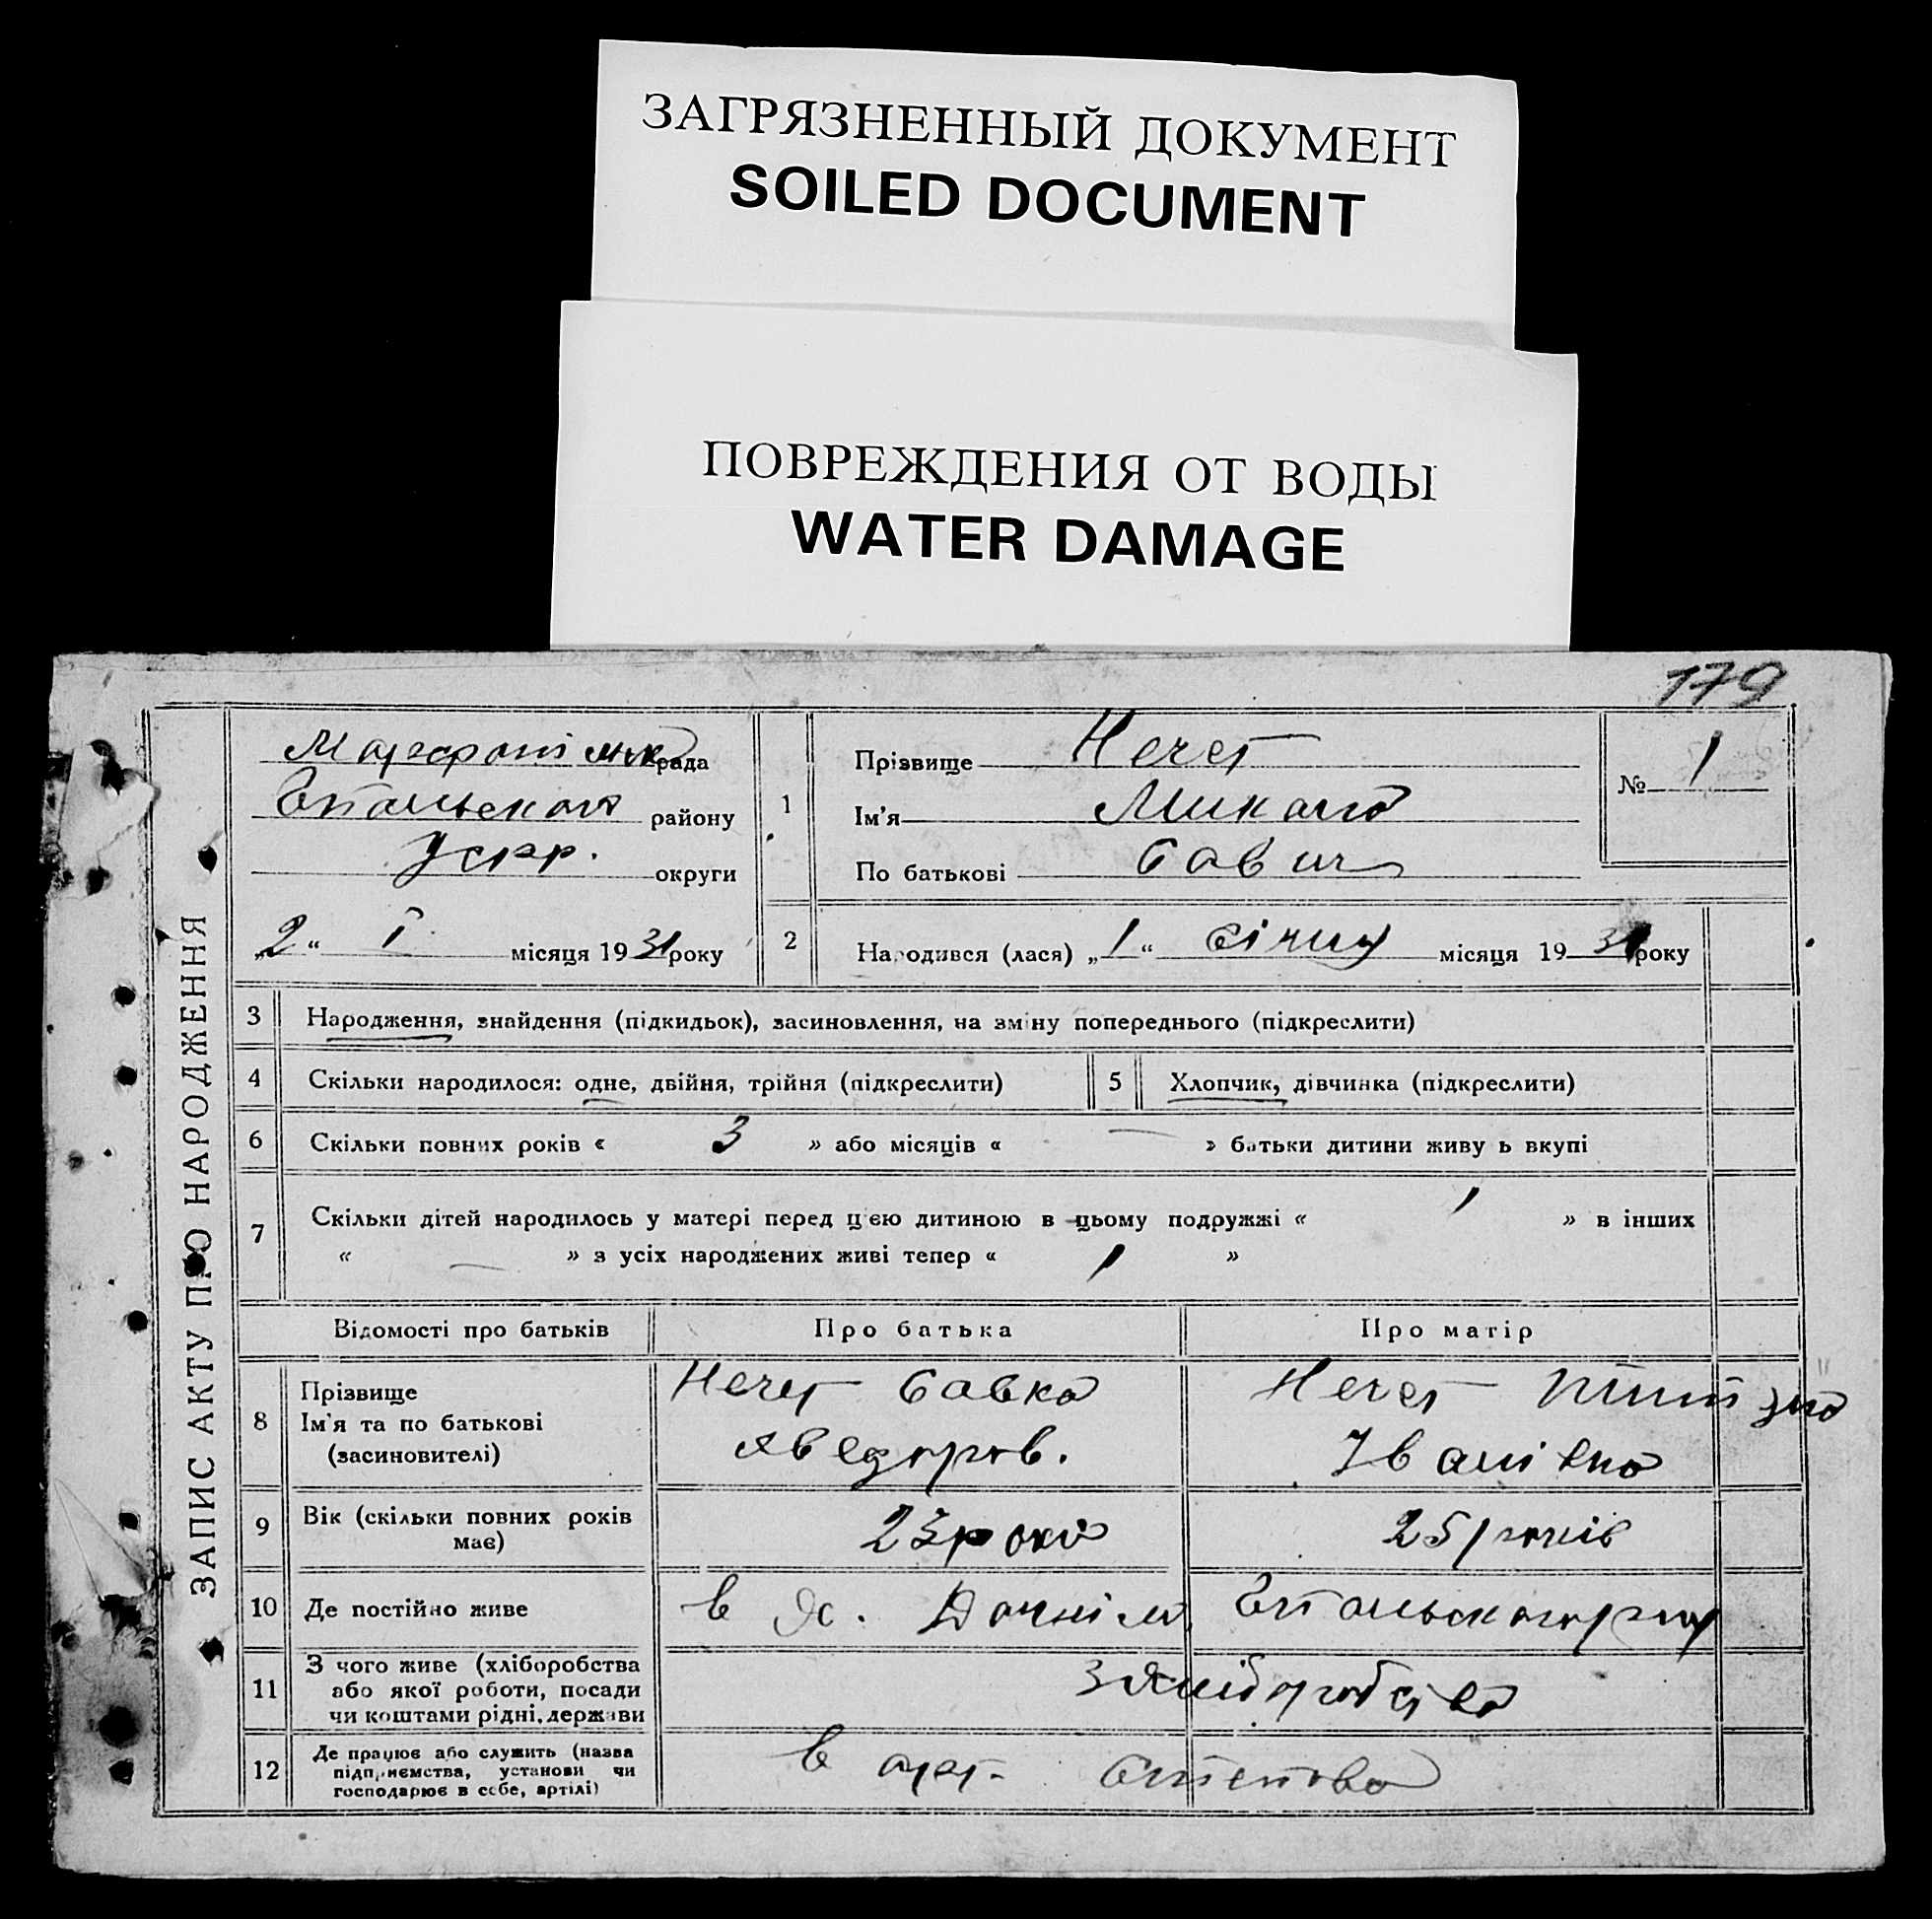 ЗАГРЯЗНЕННЫЙ ДОКУМЕНТ
SOILED DOCUMENT
ПОВРЕЖДЕНИЯ ОТ ВОДЫ
WATER DAMAGE
179
ЗАПИС АКТУ ПРО НАРОДЖЕННЯ
рада
району
Усрр. округи
„2“ І місяця 1931 року
1
Прізвище Нечет
Ім'я Микола
По батькові Савич
№ 1
2 Народився (лася) „1“ січня місяця 1931 року
3 Народження, знайдення (підкидьок), засиновлення, на зміну попереднього (підкреслити)
4 Скільки народилося: одне, двійня, трійня (підкреслити)
5 Хлопчик, дівчинка (підкреслити)
6 Скільки повних років « 3 » або місяців « — » батьки дитини живуть вкупі
7 Скільки дітей народилось у матері перед цією дитиною в цьому подружжі « 1 » в інших
« — » з усіх народжених живі тепер « 1 »
Відомості про батьків Про батька Про матір
8 Прізвище
Ім'я та по батькові
(засиновителі)
Нечет Савка
Нечет
Іванівна
9 Вік (скільки повних років
має)
23 років
25 років
10 Де постійно живе
в х. Дачнім,
11 З чого живе (хліборобства
або якої роботи, посади
чи коштами рідні, держави
З хліборобства
12 Де працює або служить (назва
підприємства, установи чи
господарює в себе, артілі)
в арт.